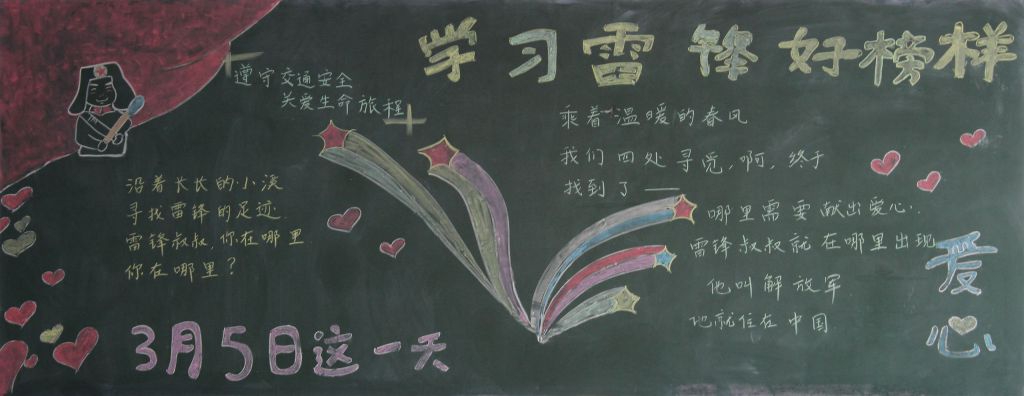 学习雷锋好榜样
遵守交通安全
关爱生命旅程
沿着长长的小溪
寻找雷锋的足迹
雷锋叔叔,你在哪里
你在哪里?
3月5日这一天
乘着温暖的春风
我们四处寻觅,啊,终于
找到了——
哪里需要献出爱心
雷锋叔叔就在哪里出现
他叫解放军
他就住在中国
爱心